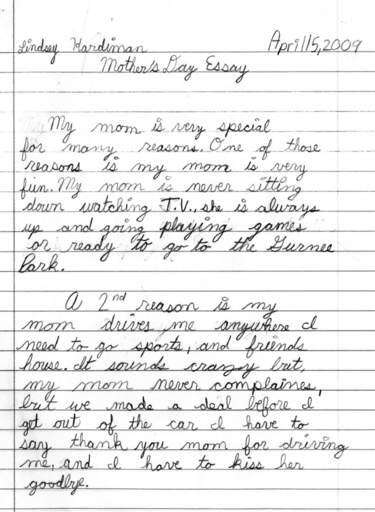 Lindsey Hardiman April 15, 2009
Mother's Day Essay
My mom is very special
for many reasons. One of those
reasons is my mom is very
fun. My mom is never sitting
down watching T.V., she is always
up and going playing games
or ready to go to the Gurnee
Park.
A 2nd reason is my
mom drives me anywhere I
need to go sports, and friends
house. It sounds crazy but,
my mom never complaines,
but we made a deal before I
get out of the car I have to
say thank you mom for driving
me, and I have to kiss her
goodbye.